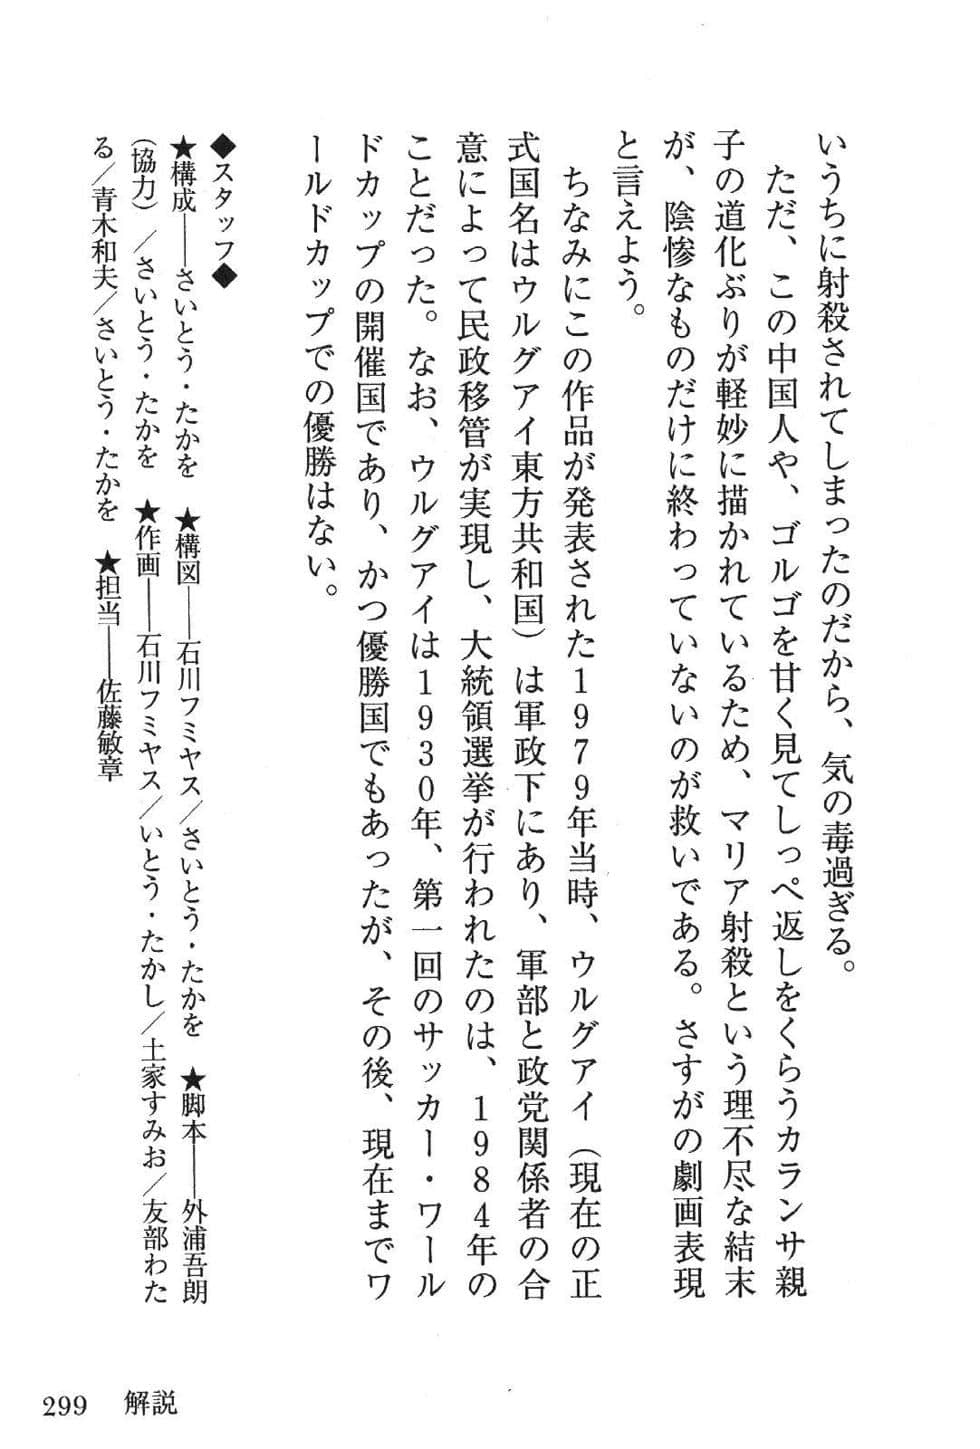 いうちに射殺されてしまったのだから、気の毒過ぎる。
ただ、この中国人や、ゴルゴを甘く見てしっぺ返しをくらうカランサ親
子の道化ぶりが軽妙に描かれているため、マリア射殺という理不尽な結末
が、陰惨なものだけに終わっていないのが救いである。さすがの劇画表現
と言えよう。
ちなみにこの作品が発表された1979年当時、ウルグアイ（現在の正
式国名はウルグアイ東方共和国）は軍政下にあり、軍部と政党関係者の合
意によって民政移管が実現し、大統領選挙が行われたのは、1984年の
ことだった。なお、ウルグアイは1930年、第一回のサッカー・ワール
ドカップの開催国であり、かつ優勝国でもあったが、その後、現在までワ
ールドカップでの優勝はない。
◆スタッフ◆
★構成──さいとう・たかを　★構図──石川フミヤス／さいとう・たかを　★脚本──外浦吾朗
（協力）／さいとう・たかを　★作画──石川フミヤス／いとう・たかし／土家すみお／友部わた
る／青木和夫／さいとう・たかを　★担当──佐藤敏章
299　解説